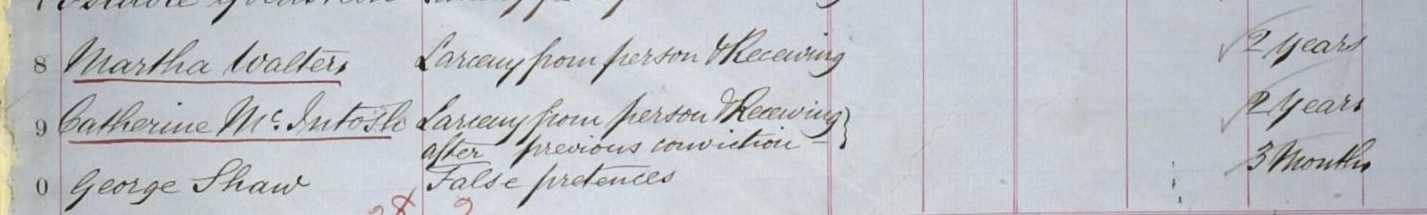 8 Martha Walters Larceny from person & Receiving 2 Years
9 Catherine Mc. Intosh Larceny from person & Receiving } 2 Years
after previous conviction
0 George Shaw False pretences 3 Months